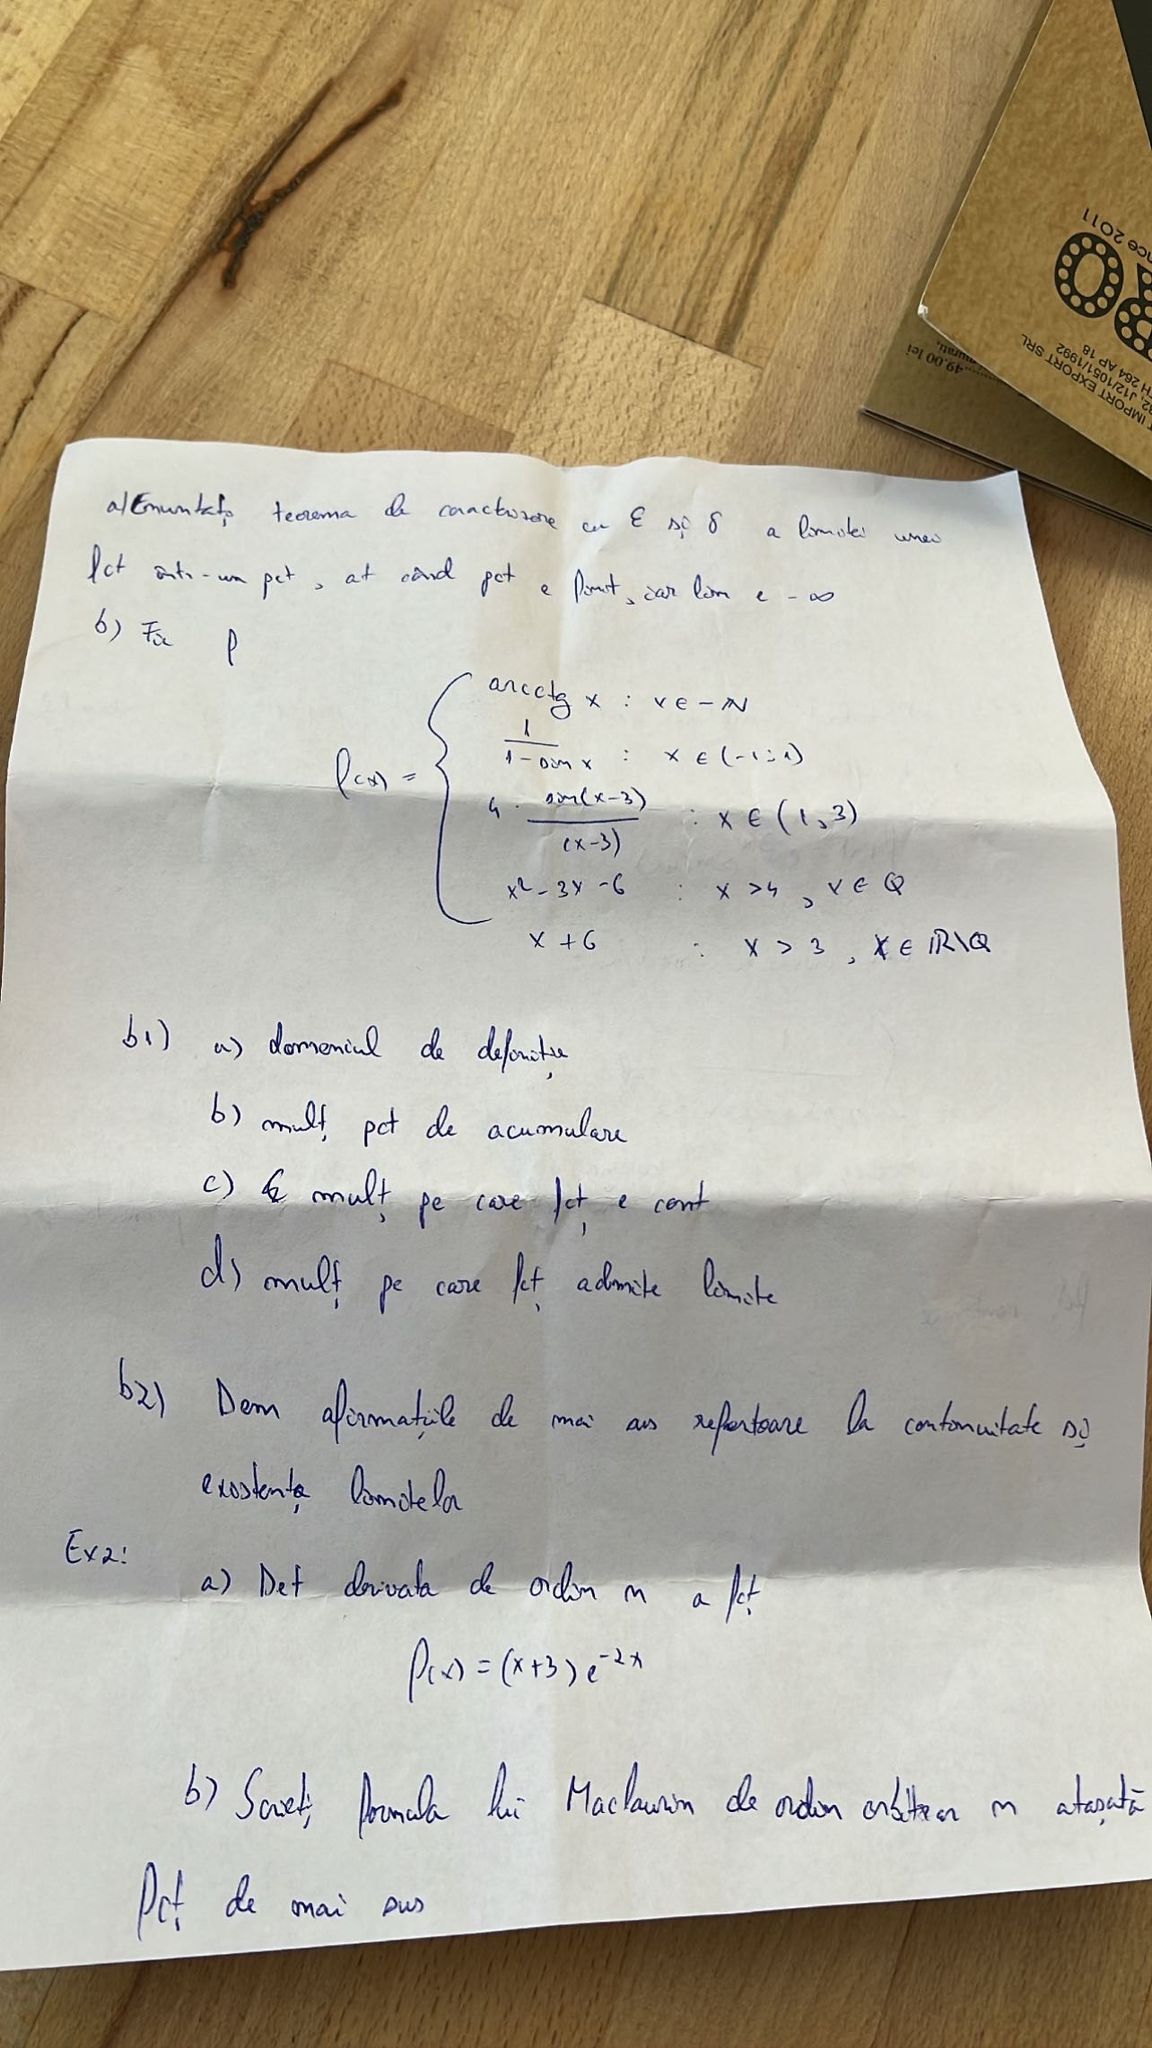 nce 2011
80
IMPORT EXPORT SRL
J12/1051/1992
264 AP 18
49.00 lei
a) Enuntați teorema de caracterizare cu ε și δ a limitei unei
fct într-un pct, at când pct e finit, iar lim e -∞
b) Fie f
f(x) = { arcctg x : x ∈ -ℕ
1/(1-sin x) : x ∈ (-1;1)
4 · sin(x-3)/(x-3) : x ∈ (1,3)
x²-3x-6 : x >4, x ∈ Q
x+6 : x > 3, x ∈ ℝ\Q
b1) a) domeniul de definiție
b) mulț pct de acumulare
c) mulț pe care fcț e cont
d) mulț pe care fcț admite limite
b2) Dem afirmațiile de mai sus refertoare la continuitate și
existența limitelor
Ex2:
a) Det derivata de ordin n a fcț
f(x) = (x+3) e^-2x
b) Scrieți formula lui Maclaurin de ordin arbitrar n atașată
fcț de mai sus